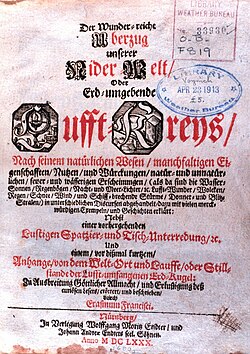 Der Wunder-reiche
Uberzug
unserer
Nider-Welt/
Oder
Erd-umgebende
Lufft-Kreys/
Nach seinem natürlichen Wesen / manchfaltigen Ei-
genschafften / Nutzen / und Würckungen / natür- und unnatür-
lichen / feuer- und träfferigen Erscheinungen / (als da sind die Wasser-
Sonnen / Regenbögen / Nacht- und
Regen / Schnee / Wind- und
Stralen/) in unterschiedlichen Discursen abgehandelt / dazu mit vielen merck-
würdigen Exempeln / und Geschichten erklärt;
Nebenst
einer vorhergehenden
Lustigen Spatzier- und Tisch-Unterredung / &c.
Und
einem / vor diesmal kurtzem /
Anhange / von dem Welt-Ort und Lauffe / oder Still-
stande der Lufft-umfangenen Erd-Kugel:
Zu Ausbreitung Göttlicher Allmacht / und Erlustigung deß
curiösen Lesers / erörtert / und beschrieben /
durch
Erasmum Francisci.
Nürnberg /
In Verlegung Wolffgang Moritz Endter / und
Johann Andreæ Endters sel. Söhnen.
Anno M DC LXXX.
WEATHER BUREAU
33930
F819
LIBRARY
APR 23 1913
Weather Bureau